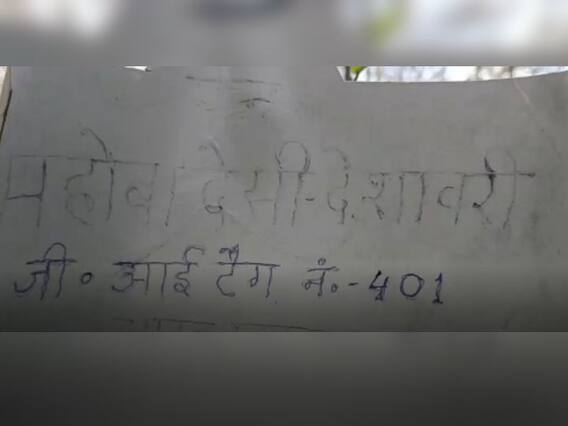 महोबा देसी-देशावरी
जी॰ आई टैग नं॰-401